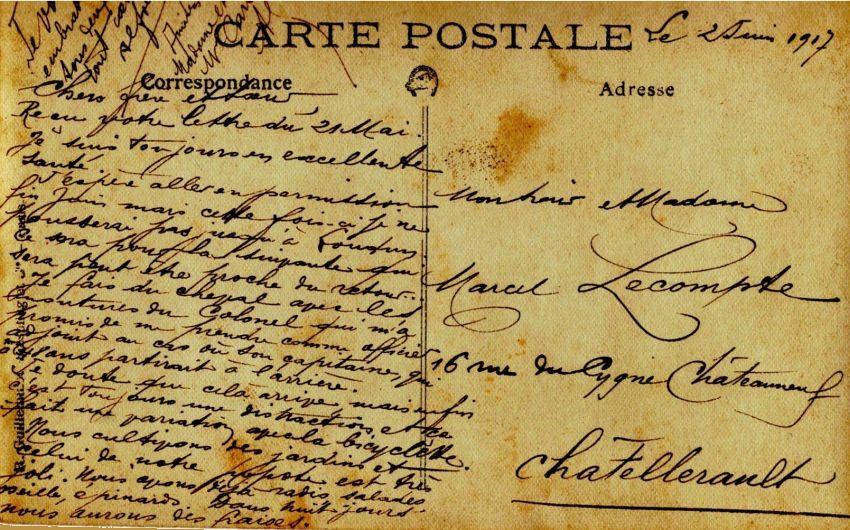 CARTE POSTALE
Le 2 Juin 1917
Correspondance
Adresse
Chers frère et sœur
Reçu votre lettre du 21 Mai.
Je suis toujours en excellente
santé.
J'espère aller en permission
fin Juin mais cette fois-ci je ne
pousserai pas jusqu'à Loudun
ce sera pour la suivante qui
sera peut être proche du retour.
Je fais du cheval avec les
montures du Colonel qui m'a
promis de me prendre comme officier
adjoint au cas où son capitaine, qui
partirait à l'arrière.
Je doute que cela arrive mais enfin
c'est toujours une distraction et ça
fait une variation après la bicyclette.
Nous cultivons des jardins et
celui de notre popote est très
joli. Nous avons déjà radis, salades
oseille, epinards. Dans huit jours
nous aurons des fraises.
Monsieur et Madame
Marcel Lecompte
16 rue du Cygne Châteauneuf
Chatellerault